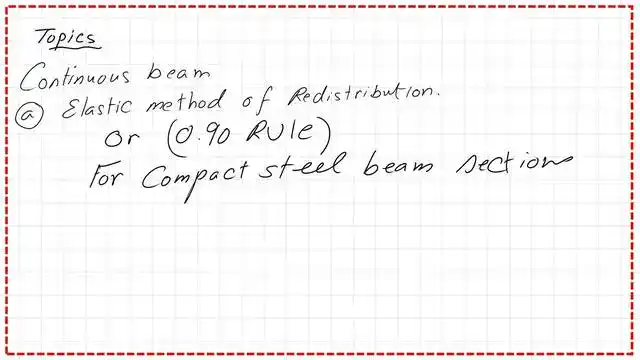 Topics
Continuous beam
a Elastic method of Redistribution.
Or (0.90 RULe)
For Compact steel beam sections